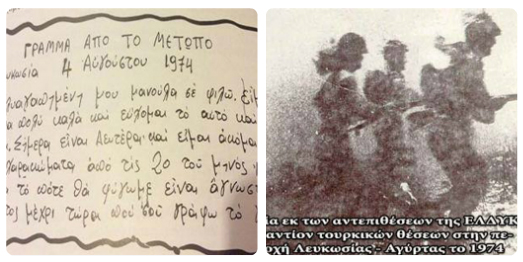 ΓΡΑΜΜΑ ΑΠΟ ΤΟ ΜΕΤΩΠΟ
υκωσία 4 Αὐγούστου 1974
υαγαπημένη μου μανούλα σέ φιλῶ. Εἶμ
πολύ καλά καί εὔχομαι τό αὐτό καί
Σήμερα εἶναι Δευτέρα καί εἶμαι ἀκόμα
αρακώματα ἀπό τίς 20 τοῦ μηνός
τό πότε θά φύγωμε εἶναι ἄγνωστ
τος μέχρι τώρα πού σοῦ γράφω τό
ία εκ των αντεπιθέσεων της ΕΛΔΥΚ
αντίον τουρκικών θέσεων στην πε-
οχή Λευκωσίας - Αγύρτας το 1974